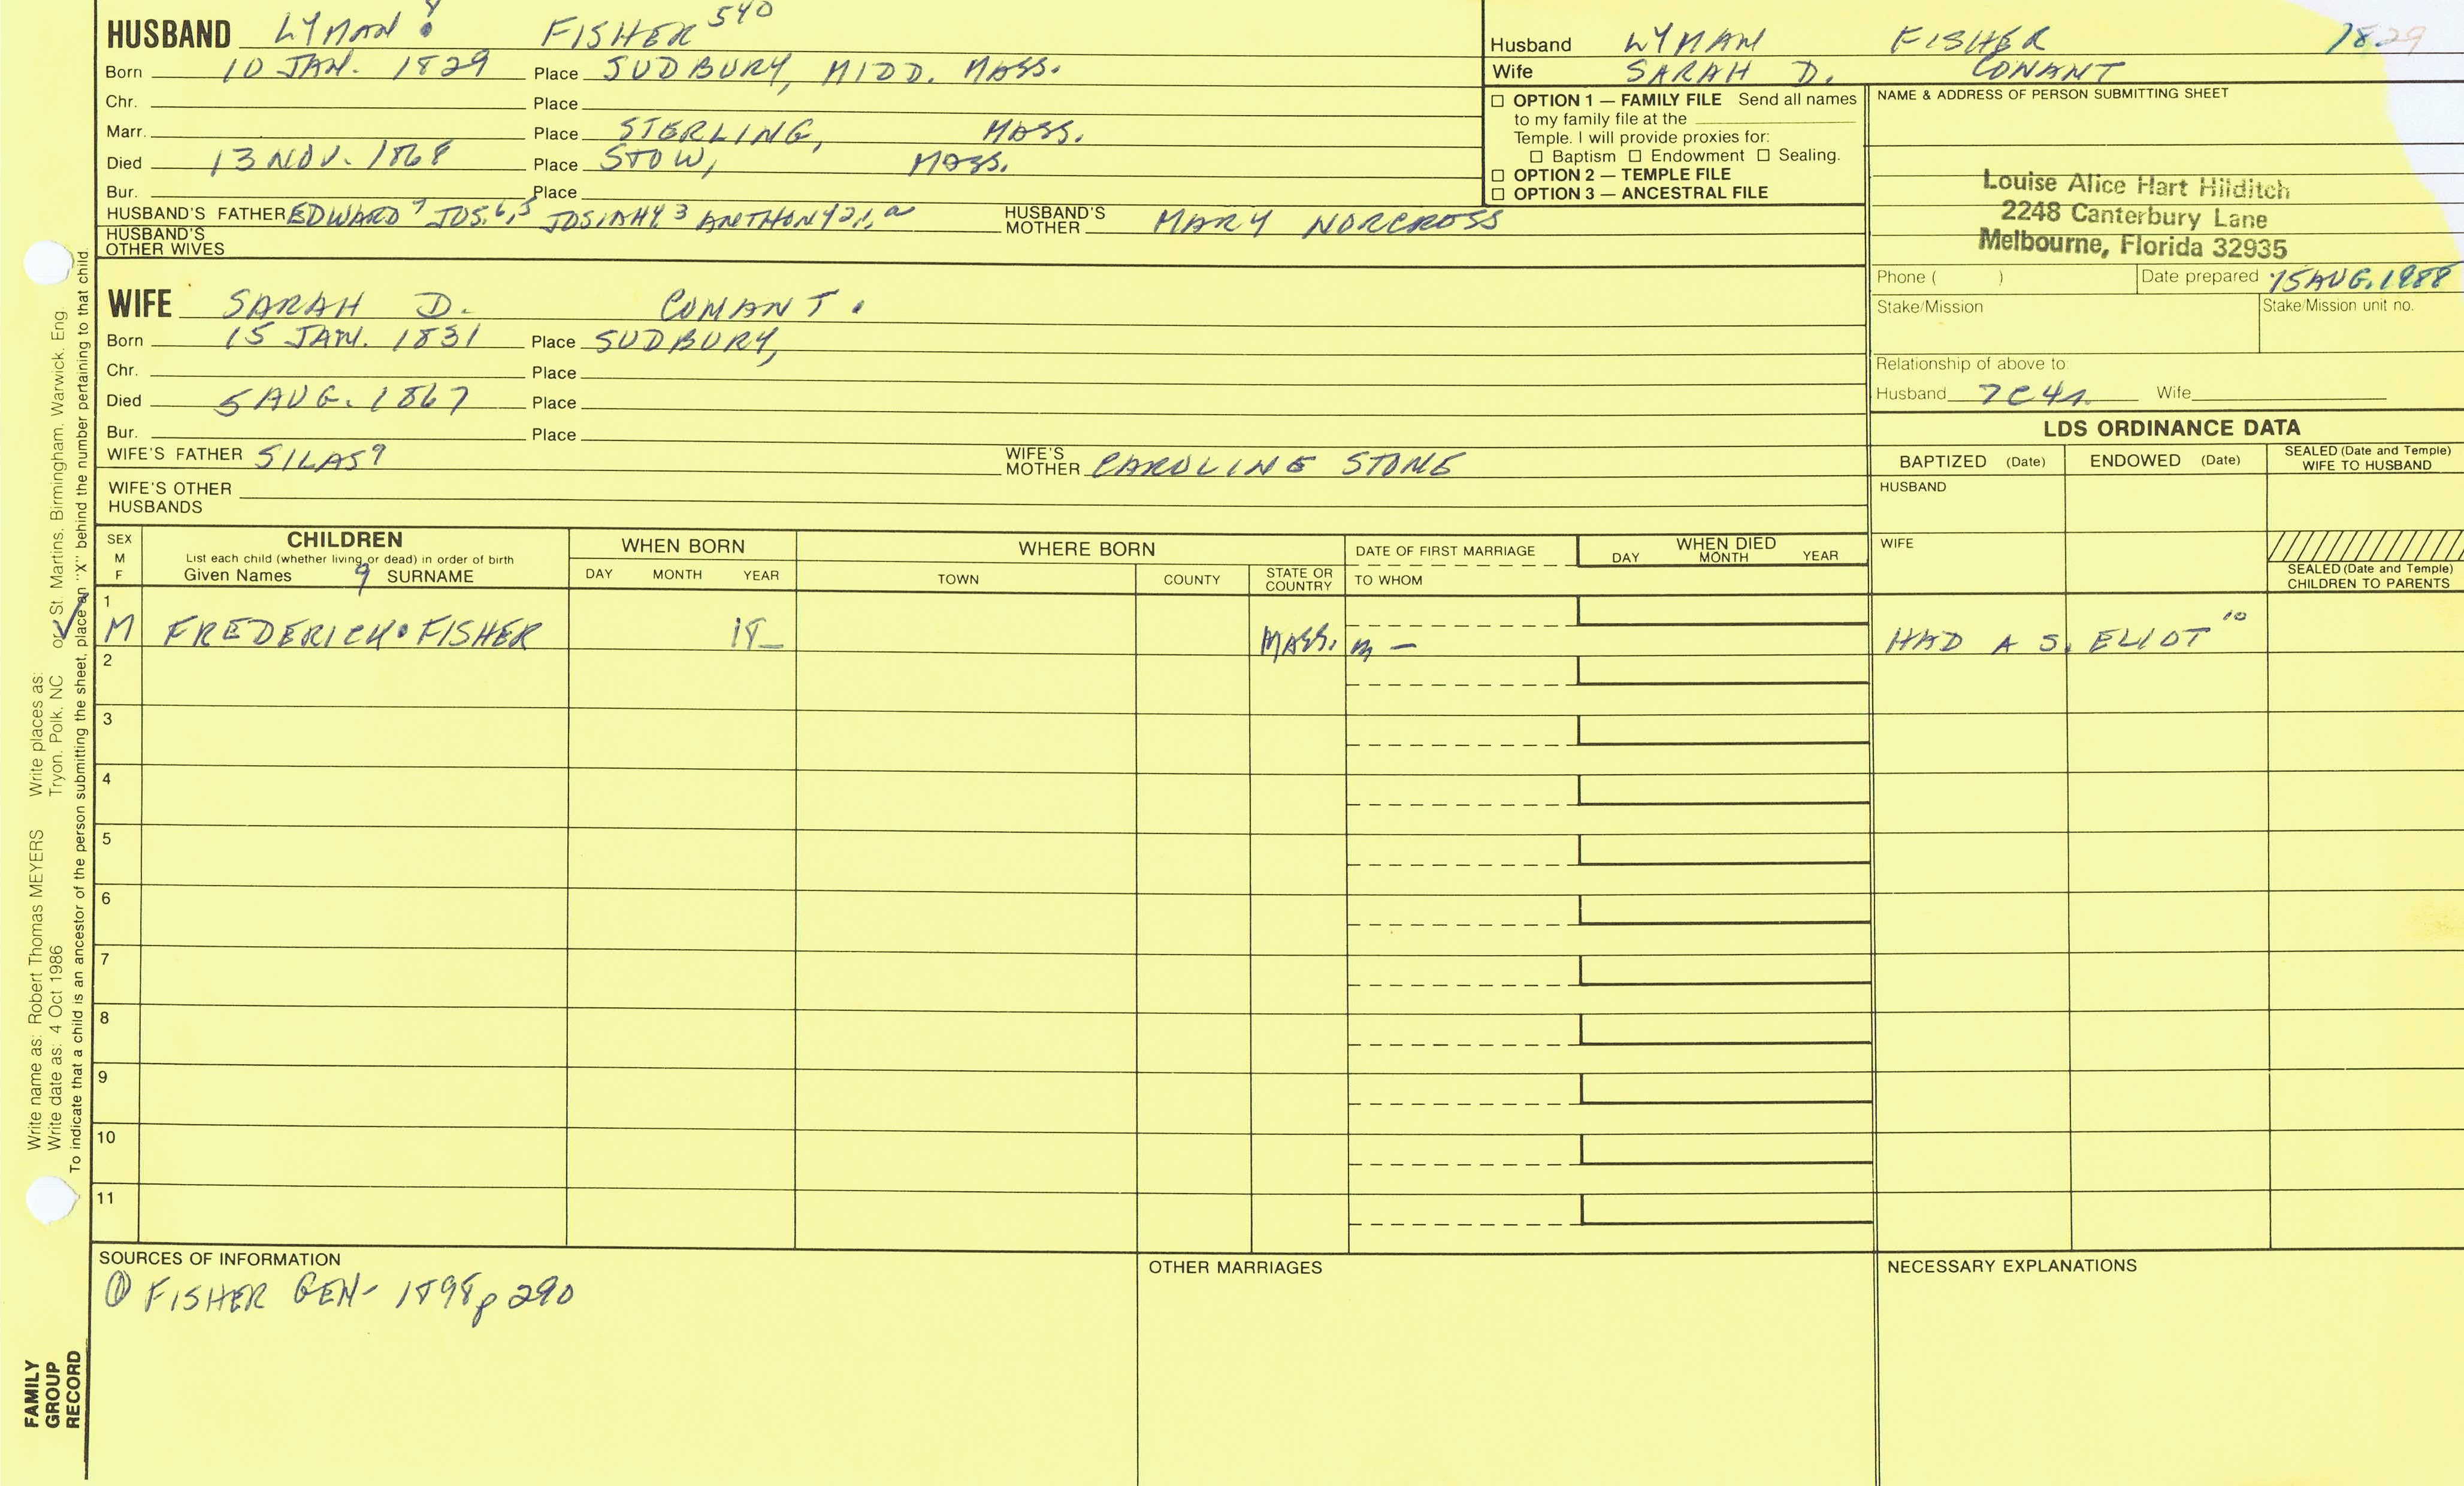 HUSBAND LYMAN 8 FISHER 540
Born 10 JAN. 1829 Place SUDBURY, MIDD. MASS.
Chr. Place
Marr. Place STERLING, MASS.
Died 13 NOV. 1868 Place STOW, MASS.
Bur. Place
HUSBAND'S FATHER EDWARD 7 JOS. 6,5 JOSIAH 4,3 ANTHONY 2,1,a HUSBAND'S MOTHER MARY NORCROSS
HUSBAND'S OTHER WIVES
Husband LYMAN FISHER 1829
Wife SARAH D. CONANT
☐ OPTION 1 — FAMILY FILE Send all names
to my family file at the
Temple. I will provide proxies for:
☐ Baptism ☐ Endowment ☐ Sealing.
☐ OPTION 2 — TEMPLE FILE
☐ OPTION 3 — ANCESTRAL FILE
NAME & ADDRESS OF PERSON SUBMITTING SHEET
Louise Alice Hart Hilditch
2248 Canterbury Lane
Melbourne, Florida 32935
Phone ( ) Date prepared 15 AUG. 1988
Stake/Mission Stake/Mission unit no.
Relationship of above to:
Husband 7C4r. Wife
WIFE SARAH D. CONANT.
Born 15 JAN. 1831 Place SUDBURY,
Chr. Place
Died 5 AUG. 1867 Place
Bur. Place
WIFE'S FATHER SILAS 9 WIFE'S MOTHER CAROLINE STONE
WIFE'S OTHER HUSBANDS
LDS ORDINANCE DATA
BAPTIZED (Date) ENDOWED (Date) SEALED (Date and Temple) WIFE TO HUSBAND
HUSBAND
WIFE
SEALED (Date and Temple) CHILDREN TO PARENTS
SEX M F
CHILDREN
List each child (whether living or dead) in order of birth
Given Names 9 SURNAME
WHEN BORN
DAY MONTH YEAR
WHERE BORN
TOWN COUNTY STATE OR COUNTRY
DATE OF FIRST MARRIAGE
TO WHOM
WHEN DIED
DAY MONTH YEAR
1
✓ M FREDERICK FISHER 18_ MASS. m – HAD A S. ELIOT 10
2
3
4
5
6
7
8
9
10
11
SOURCES OF INFORMATION
① FISHER GEN- 1898 p 290
OTHER MARRIAGES
NECESSARY EXPLANATIONS
Write name as: Robert Thomas MEYERS Write places as:
Write date as: 4 Oct 1986 Tryon, Polk, NC or St. Martins, Birmingham, Warwick, Eng.
To indicate that a child is an ancestor of the person submitting the sheet, place an "X" behind the number pertaining to that child.
FAMILY
GROUP
RECORD